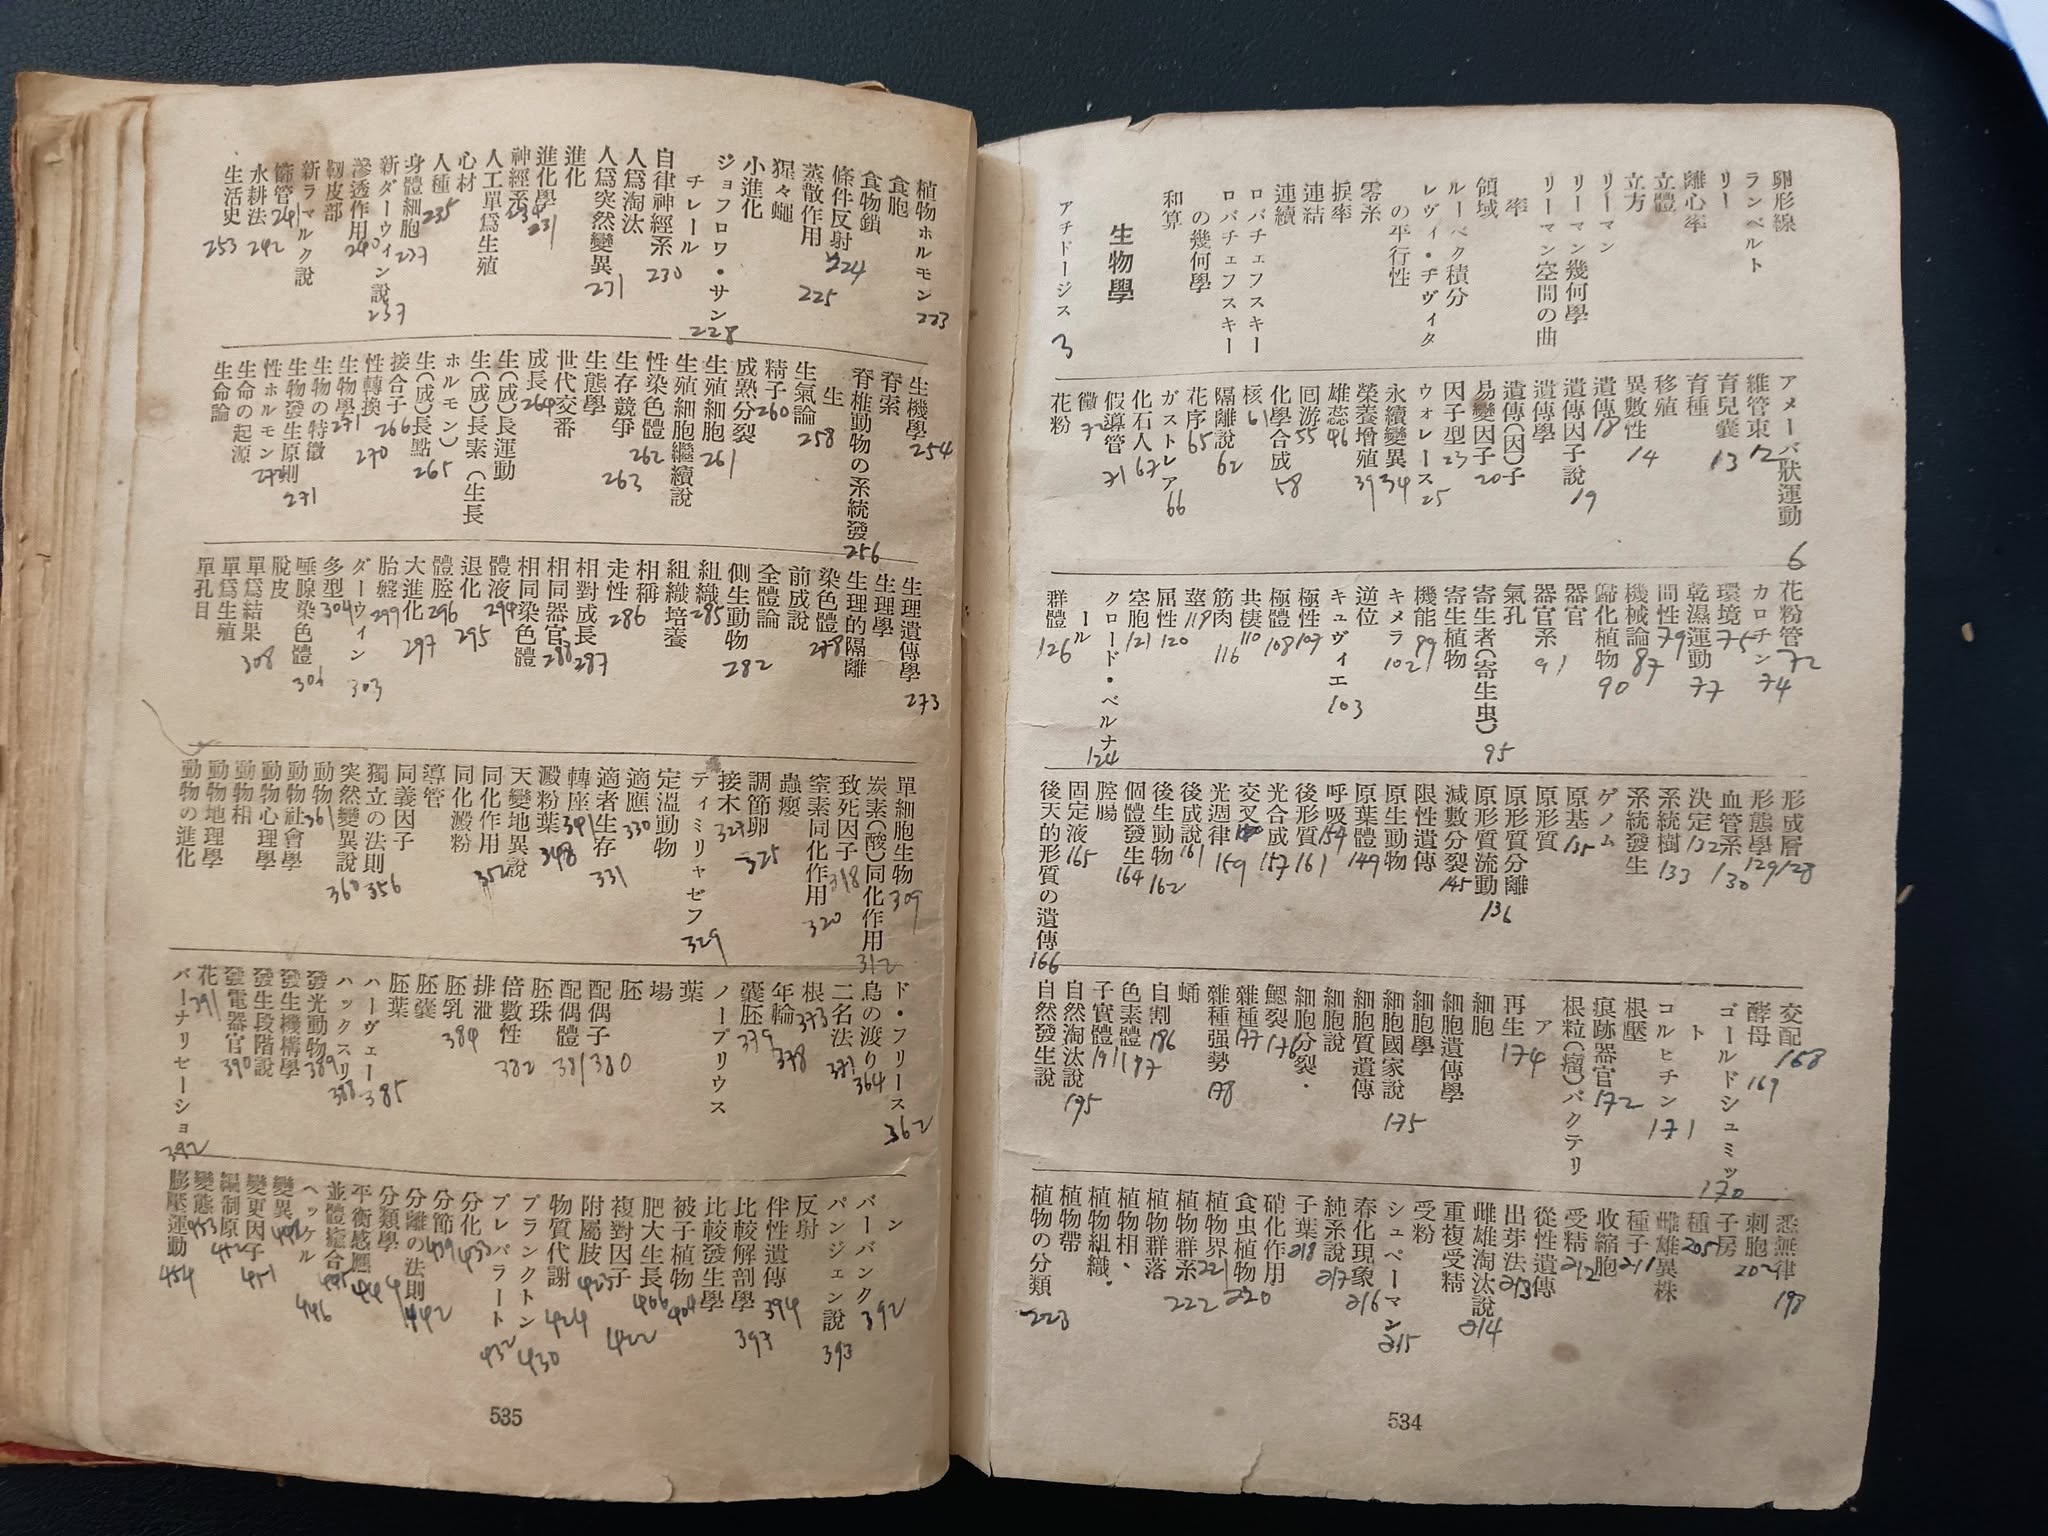 卵形線
ランベルト
リー
離心率
立體
立方
リーマン
リーマン幾何學
リーマン空間の曲
率
領域
ルーベク積分
レヴィ・チヴィタ
の平行性
零系
捩率
連結
連續
ロバチェフスキー
ロバチェフスキー
の幾何學
和算
生物學
アチドージス 3
アメーバ狀運動 6
維管束 12
育兒囊 13
育種
移殖
異數性 14
遺傳 18
遺傳因子說 19
遺傳學
遺傳(因)子
易變因子 20
因子型 23
ウォレース 25
永續變異 34
榮養增殖 39
雄蕊 46
囘游 55
化學合成 58
核 61
隔離說 62
花序 65
ガストレア 66
化石人 67
假導管 71
黴 72
花粉
花粉管 72
カロチン 74
環境 75
乾濕運動 77
間性 79
機械論 87
歸化植物 90
器官
器官系 91
氣孔
寄生者(寄生虫) 95
寄生植物
機能 89
キメラ 102
逆位
キュヴィエ 103
極性 107
極體 108
共棲 110
筋肉 116
莖 119
屈性 120
空胞 121
クロード・ベルナ 124
ール
群體 126
形成層 128
形態學 129
血管系 130
決定 132
系統樹 133
系統發生
ゲノム
原基 135
原形質
原形質分離
原形質流動 136
減數分裂 145
限性遺傳
原生動物
原葉體 149
呼吸 154
後形質 161
光合成 157
交叉
光週律 159
後成說 161
後生動物 162
個體發生 164
腔腸
固定液 165
後天的形質の遺傳 166
交配 168
酵母 169
ゴールドシュミッ 170
ト
コルヒチン 171
根壓
痕跡器官 172
根粒(瘤)バクテリ
ア
再生 174
細胞
細胞遺傳學
細胞學
細胞國家說 175
細胞質遺傳
細胞說
細胞分裂・
鰓裂 176
雜種 177
雜種强勢 178
蛹
自割 186
色素體 187
子實體 191
自然淘汰說 195
自然發生說
悉無律 198
刺胞 202
子房
種 205
雌雄異株
種子 211
收縮胞
受精 212
從性遺傳
出芽法 213
雌雄淘汰說 214
重複受精
受粉
シュペーマン 215
春化現象 216
純系說 217
子葉 218
硝化作用
食虫植物 220
植物界 221
植物群系 222
植物群落
植物相、
植物組織・
植物帶
植物の分類 223
534
植物ホルモン 223
食胞
食物鎖
條件反射 224
蒸散作用 225
猩々蠅
小進化
ジョフロワ・サン 228
チレール
自律神經系 230
人爲淘汰
人爲突然變異 231
進化
進化學 231
神經系 234
人工單爲生殖
心材
人種 235
身體細胞 237
新ダーウィン說 237
滲透作用 240
靱皮部
新ラマルク說
篩管 241
水耕法 242
生活史 253
生機學 254
脊索
脊椎動物の系統發 256
生
生氣論 258
精子 260
成熟分裂
生殖細胞 261
生殖細胞繼續說
性染色體 262
生存競爭 263
生態學
世代交番
成長 264
生(成)長運動
生(成)長素(生長
ホルモン)
生(成)長點 265
接合子 266
性轉換 270
生物學 271
生物の特徵
生物發生原則 271
性ホルモン 272
生命の起源
生命論
生理遺傳學 273
生理學
生理的隔離
染色體 278
前成說
全體論
側生動物 282
組織 285
組織培養
相稱
走性 286
相對成長 287
相同器官 288
相同染色體
體液 294
退化 295
體腔 296
大進化 297
胎盤 299
ダーウィン 303
多型 304
唾腺染色體 306
脫皮
單爲結果 308
單爲生殖
單孔目
單細胞生物 309
炭素(酸)同化作用 312
致死因子 318
窒素同化作用 320
蟲癭
調節卵 325
接木 327
ティミリャゼフ 329
定溫動物
適應 330
適者生存 331
轉座 341
澱粉葉 348
天變地異說
同化作用 352
同化澱粉
導管
同義因子
獨立の法則 356
突然變異說 360
動物 361
動物社會學
動物心理學
動物相
動物地理學
動物の進化
ド・フリース 362
鳥の渡り 364
二名法 371
根 373
年輪 378
囊胚 379
ノープリウス
葉
場
胚
配偶子 380
配偶體 381
胚珠
倍數性 382
排泄
胚乳 384
胚囊
胚葉
ハーヴェー 385
ハックスリ 388
發光動物 389
發生機構學
發生段階說
發電器官 390
花 391
バーナリゼーショ 392
ン
バーバンク 392
パンジェン說 393
反射
伴性遺傳 394
比較解剖學 397
比較發生學
被子植物 404
肥大生長 406
複對因子 422
附屬肢 423
物質代謝 424
プランクトン 430
プレパラート 432
分化 433
分節 439
分離の法則 442
分類學
平衡感應 444
並體癒合 445
ヘッケル 446
變異 448
變更因子 451
編制原 452
變態 453
膨壓運動 454
535